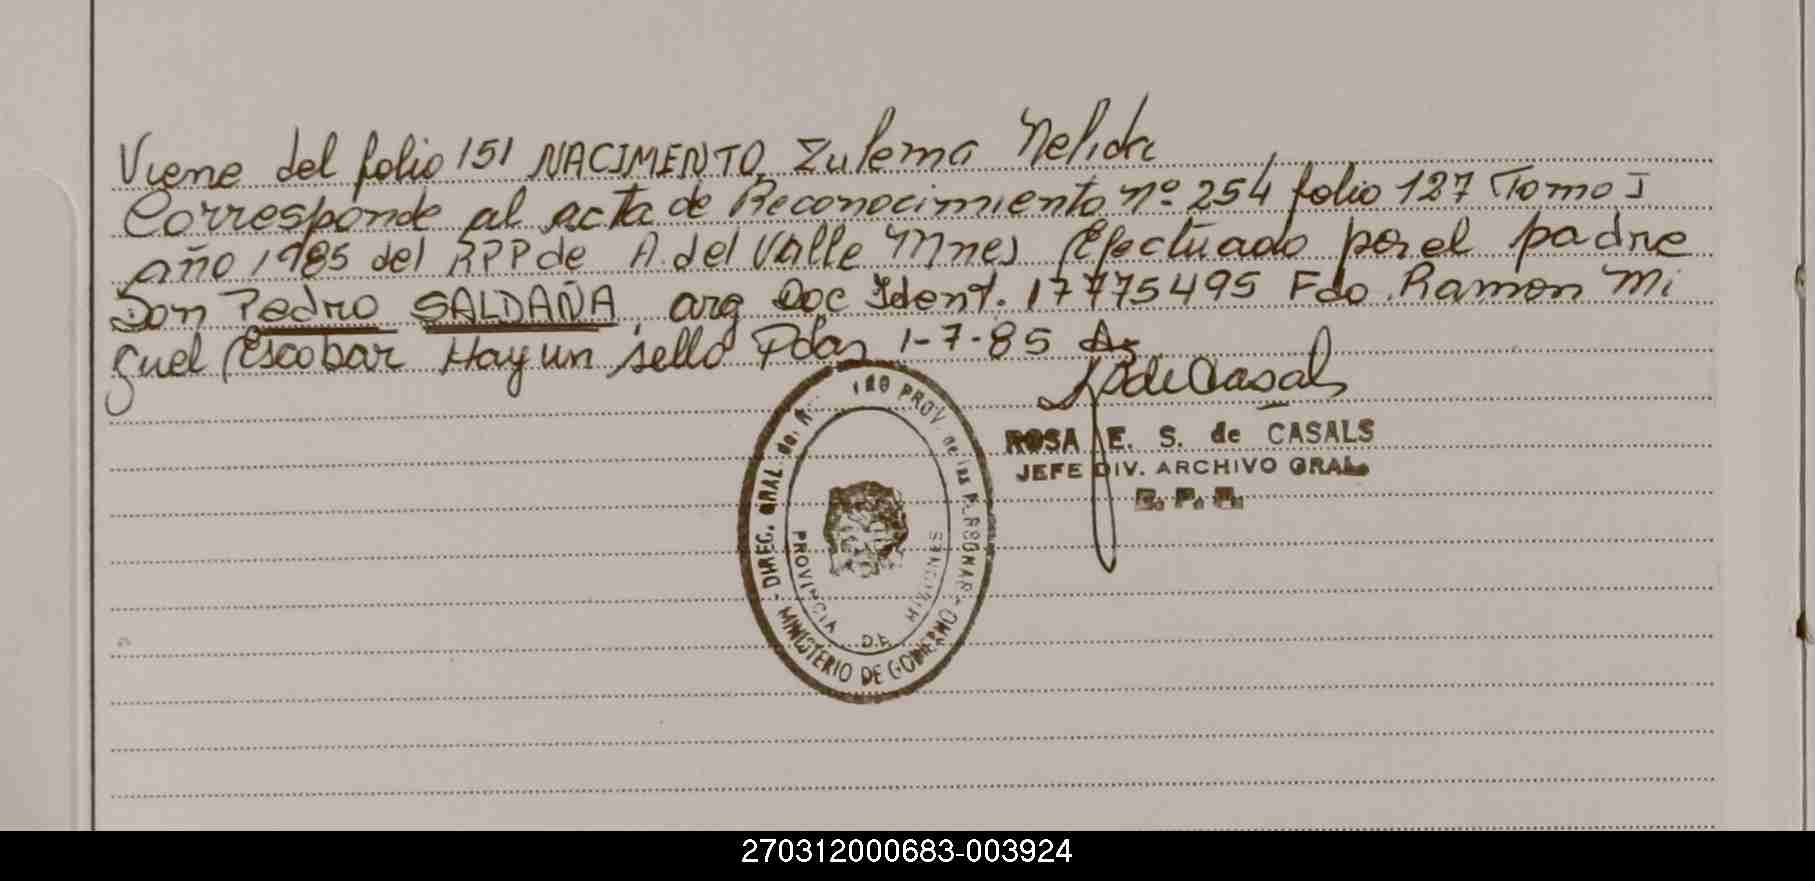 Viene del folio 151 NACIMIENTO, Zulema Nelida
Corresponde al acta de Reconocimiento nº 254 folio 127 Tomo I
año 1985 del RPP de A. del Valle Mnes Efectuado por el padre
Don Pedro SALDAÑA, arg Doc Ident. 17775495 Fdo. Ramon Mi
guel Escobar Hay un sello Pdas 1-7-85
ROSA E. S. de CASALS
JEFE DIV. ARCHIVO GRAL.
DIREC. GRAL. de. PROV. de las PERSONAS
MINISTERIO DE GOBIERNO
PROVINCIA DE MISIONES
270312000683-003924